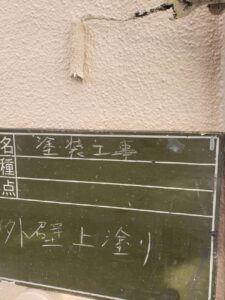 名 塗装工事
種
点
外壁上塗り